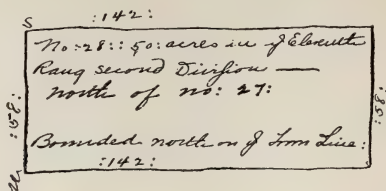 S :142:
No: 28: : 50: acres in ye Eleventh
Rang second Division —
north of no: 27:
:58: :58:
Bounded north on ye Town Line:
:142: